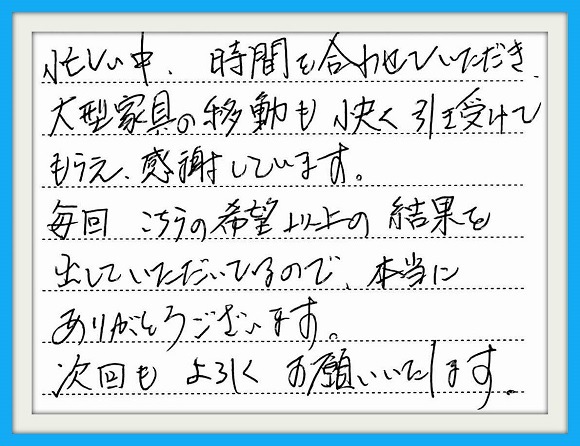 忙しい中、時間を合わせていただき、
大型家具の移動も快く引き受けて
もらえ、感謝しています。
毎回 こちらの希望以上の結果を
出していただいているので、本当に
ありがとうございます。
次回も よろしく お願いいたします。